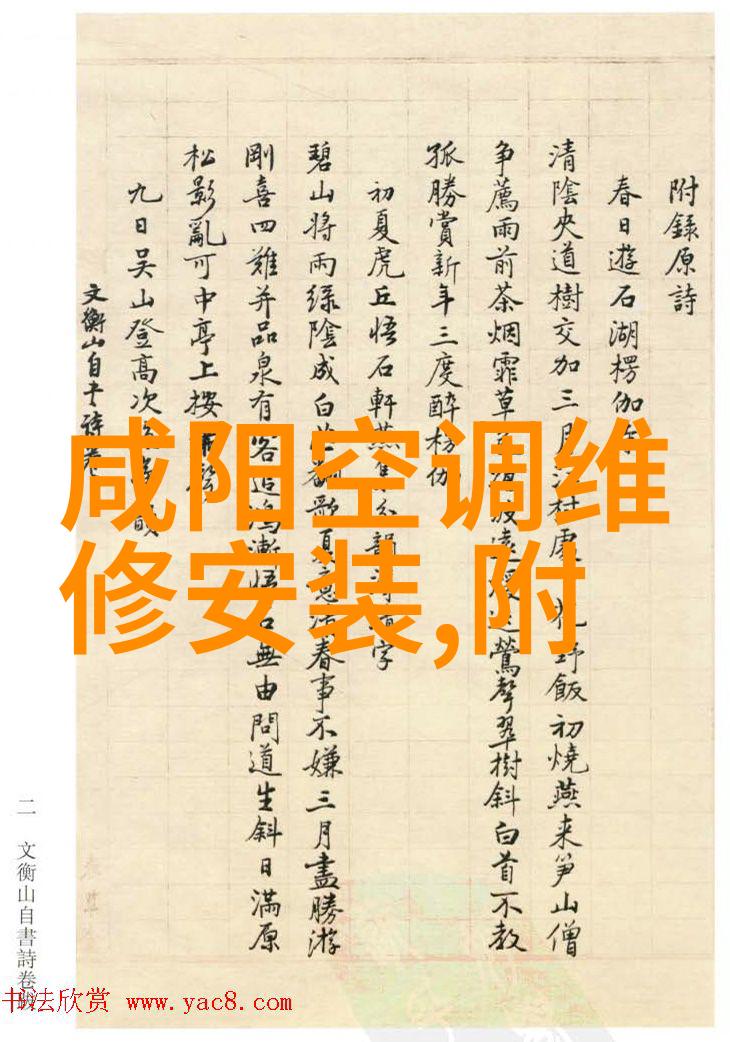 附錄原詩
春日遊石湖楞伽
清陰夾道樹交加三月江村處 野飯初燒燕来笋山僧
争薦雨前茶烟霏草 遠 鶯聲翠樹斜白首不教
孤勝賞新年三度醉枋
初夏虎丘悟石軒燕 韻 字
碧山將雨绿陰成白 歌 春事不嫌三月盡勝游
剛喜四難并品泉有客 鴻漸悟石無由問道生斜日滿原
松影亂可中亭上按
九日吴山登高次
文衡山自書詩卷
咸阳空调维
修安装,附
二 文衡山自書詩卷跋
书法欣赏 www.yac8.com